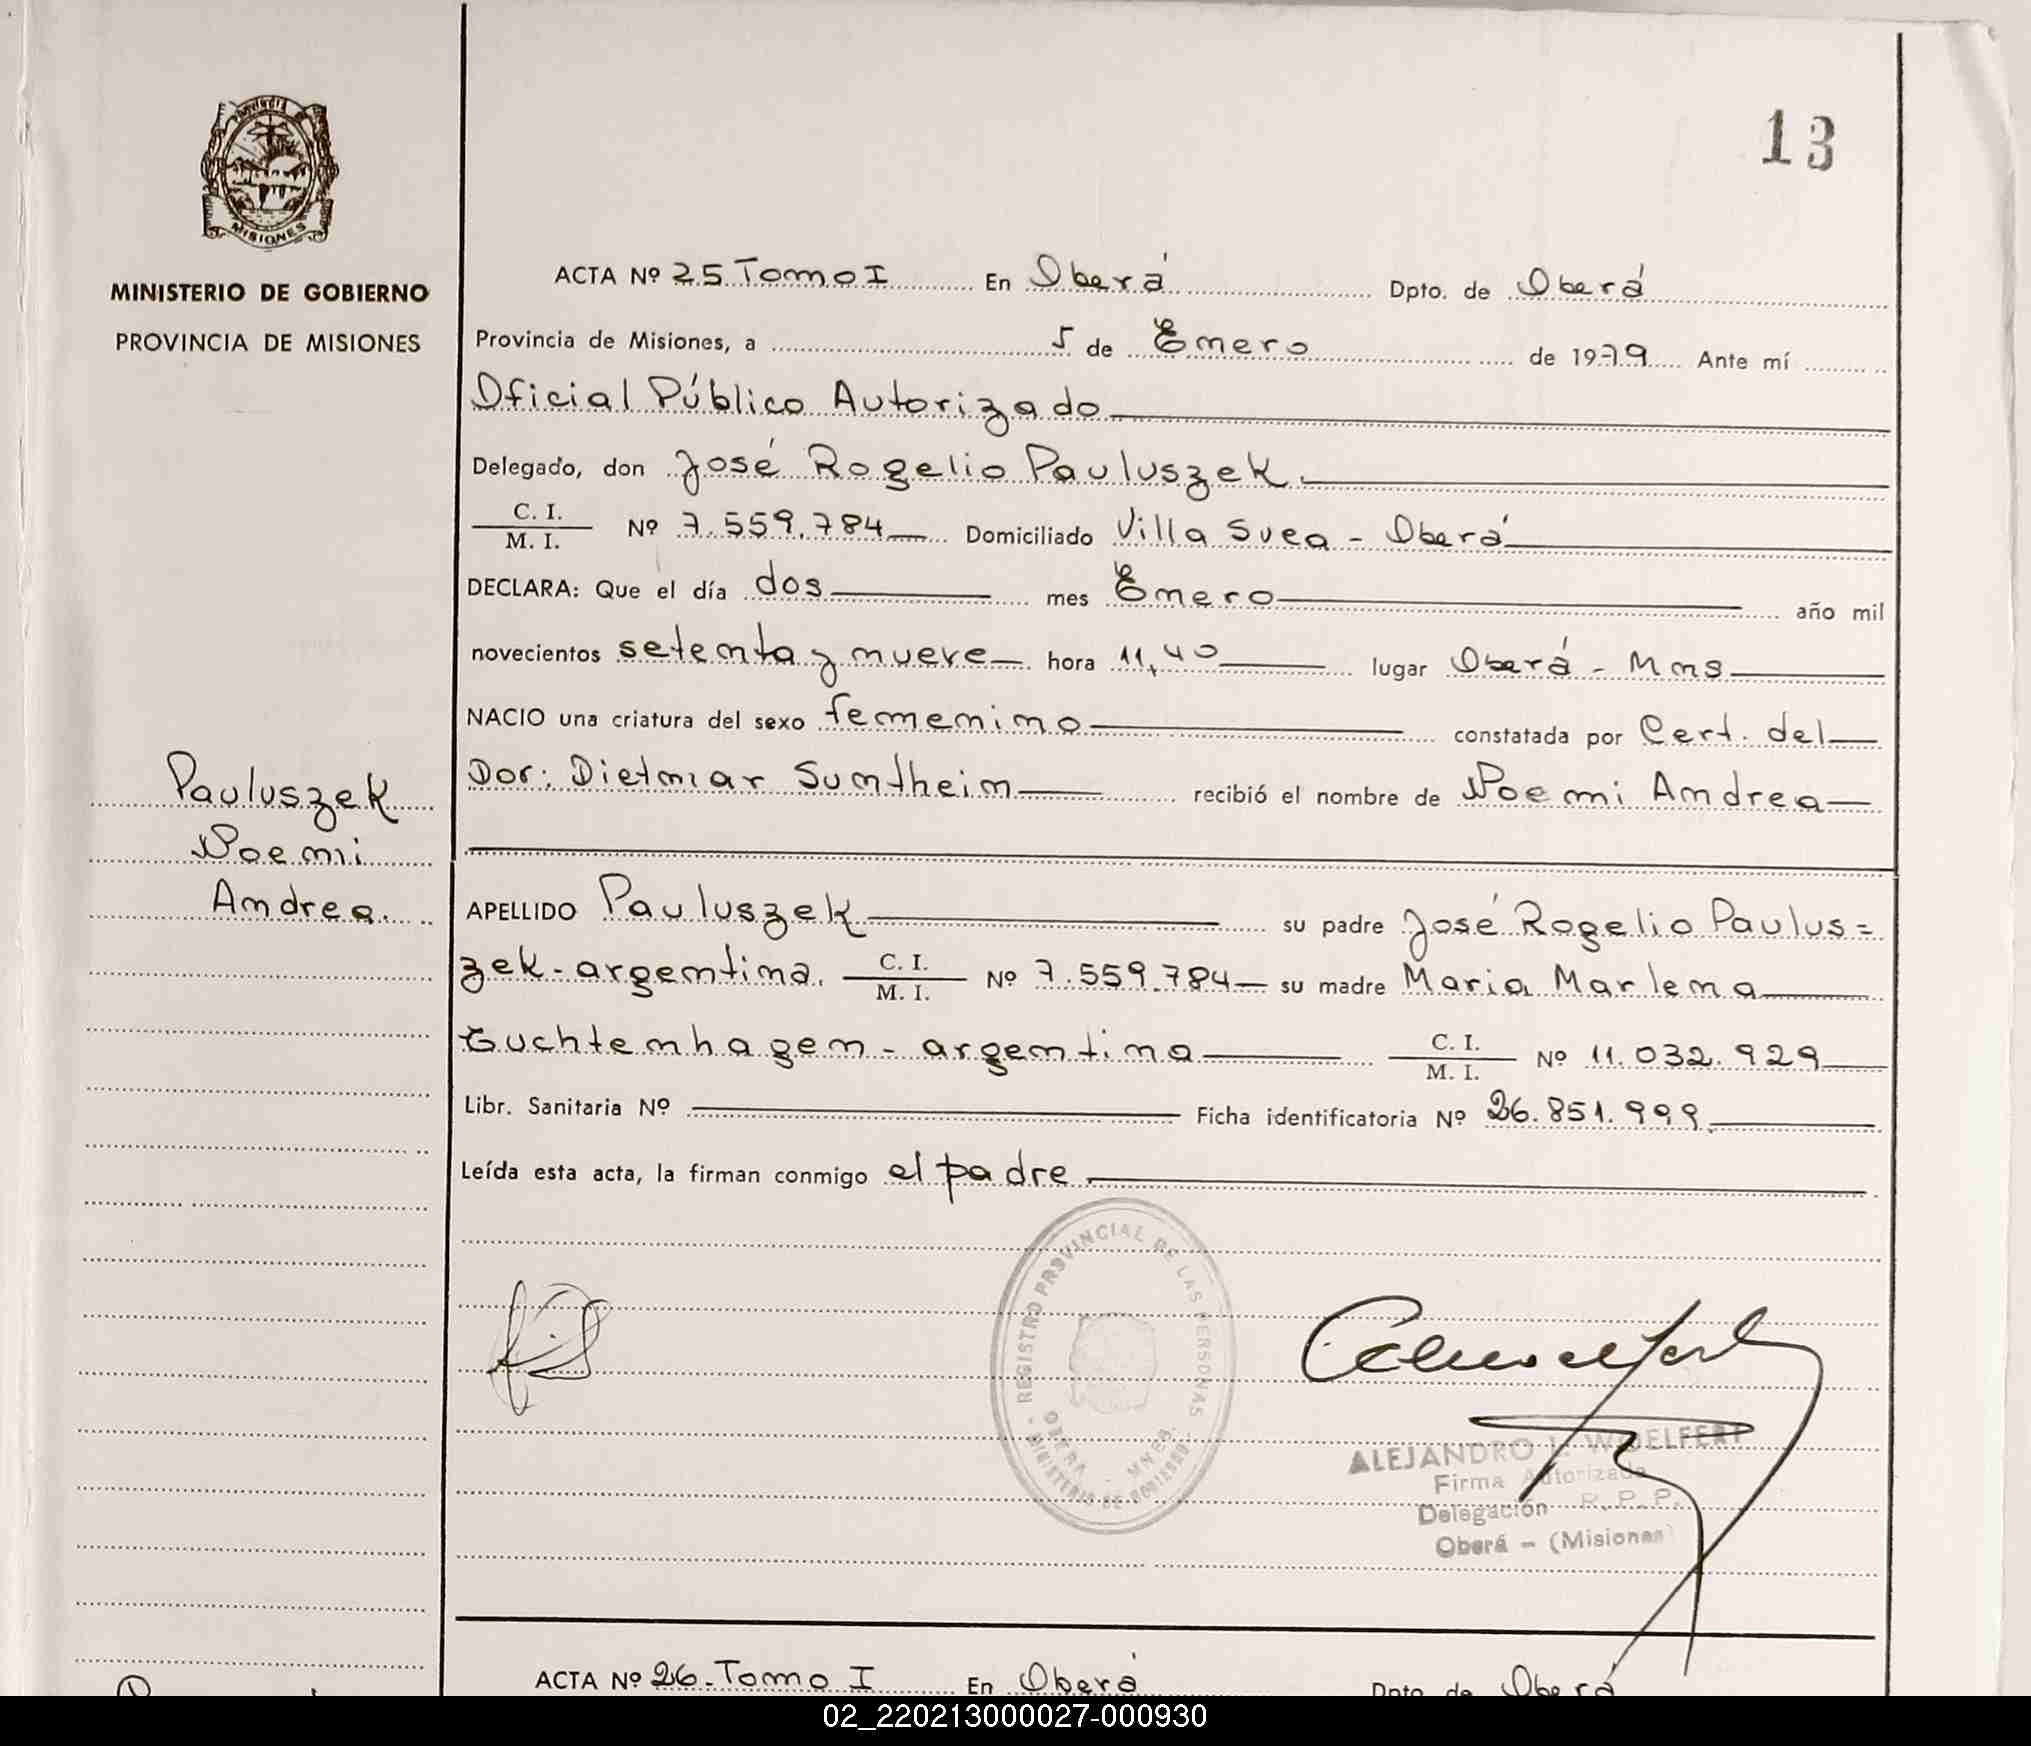 13
Provincia
MISIONES
MINISTERIO DE GOBIERNO
PROVINCIA DE MISIONES
ACTA Nº 25 Tomo I En Oberá Dpto. de Oberá
Provincia de Misiones, a 5 de Enero de 1979 Ante mí
Oficial Público Autorizado
Delegado, don José Rogelio Pauluszek
C. I.
M. I. Nº 7.559.784 Domiciliado Villa Svea - Oberá
DECLARA: Que el día dos mes Enero año mil
novecientos setenta y nueve hora 11,40 lugar Oberá - Mns
NACIO una criatura del sexo femenino constatada por Cert. del
Dor: Dietmar Sumtheim recibió el nombre de Noemi Andrea
Pauluszek
Noemi
Andrea
APELLIDO Pauluszek su padre José Rogelio Paulus=
zek-argentina. C. I.
M. I. Nº 7.559.784 su madre Maria Marlena
Tuchtenhagen - argentina C. I.
M. I. Nº 11.032.929
Libr. Sanitaria Nº Ficha identificatoria Nº 26.851.999
Leída esta acta, la firman conmigo el padre
REGISTRO PROVINCIAL DE LAS PERSONAS
OBERA - MNES.
MINISTERIO DE GOBIERNO
ALEJANDRO L. WOELFERT
Firma Autorizada
Delegación R.P.P.
Oberá - (Misiones)
ACTA Nº 26. Tomo I En Oberá Dpto. de Oberá
02_220213000027-000930